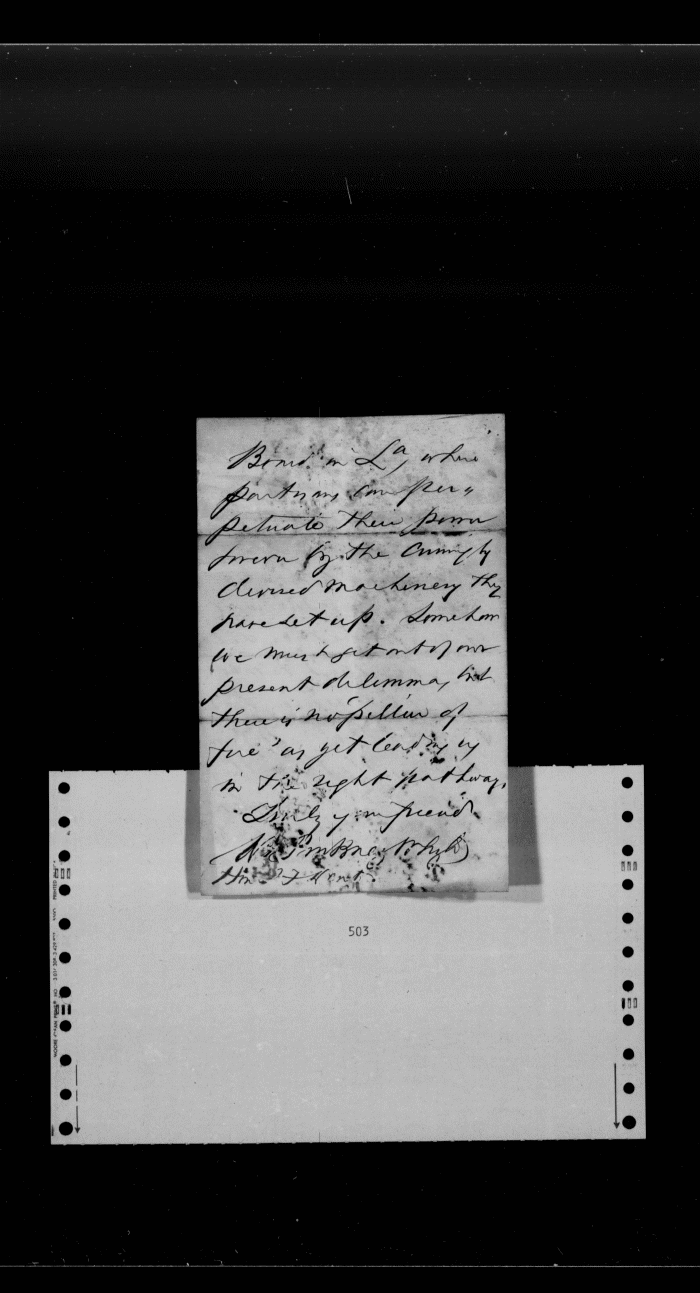 Board in La, where
partisans can per=
petuate their power
forever by the cunningly
devised machinery they
have set up. Somehow
we must get out of our
present dilemma, but
there is no "pillar of
fire" as yet leading us
in the right pathway.
Truly your friend
Wm Pinkney Whyte
Hon
503